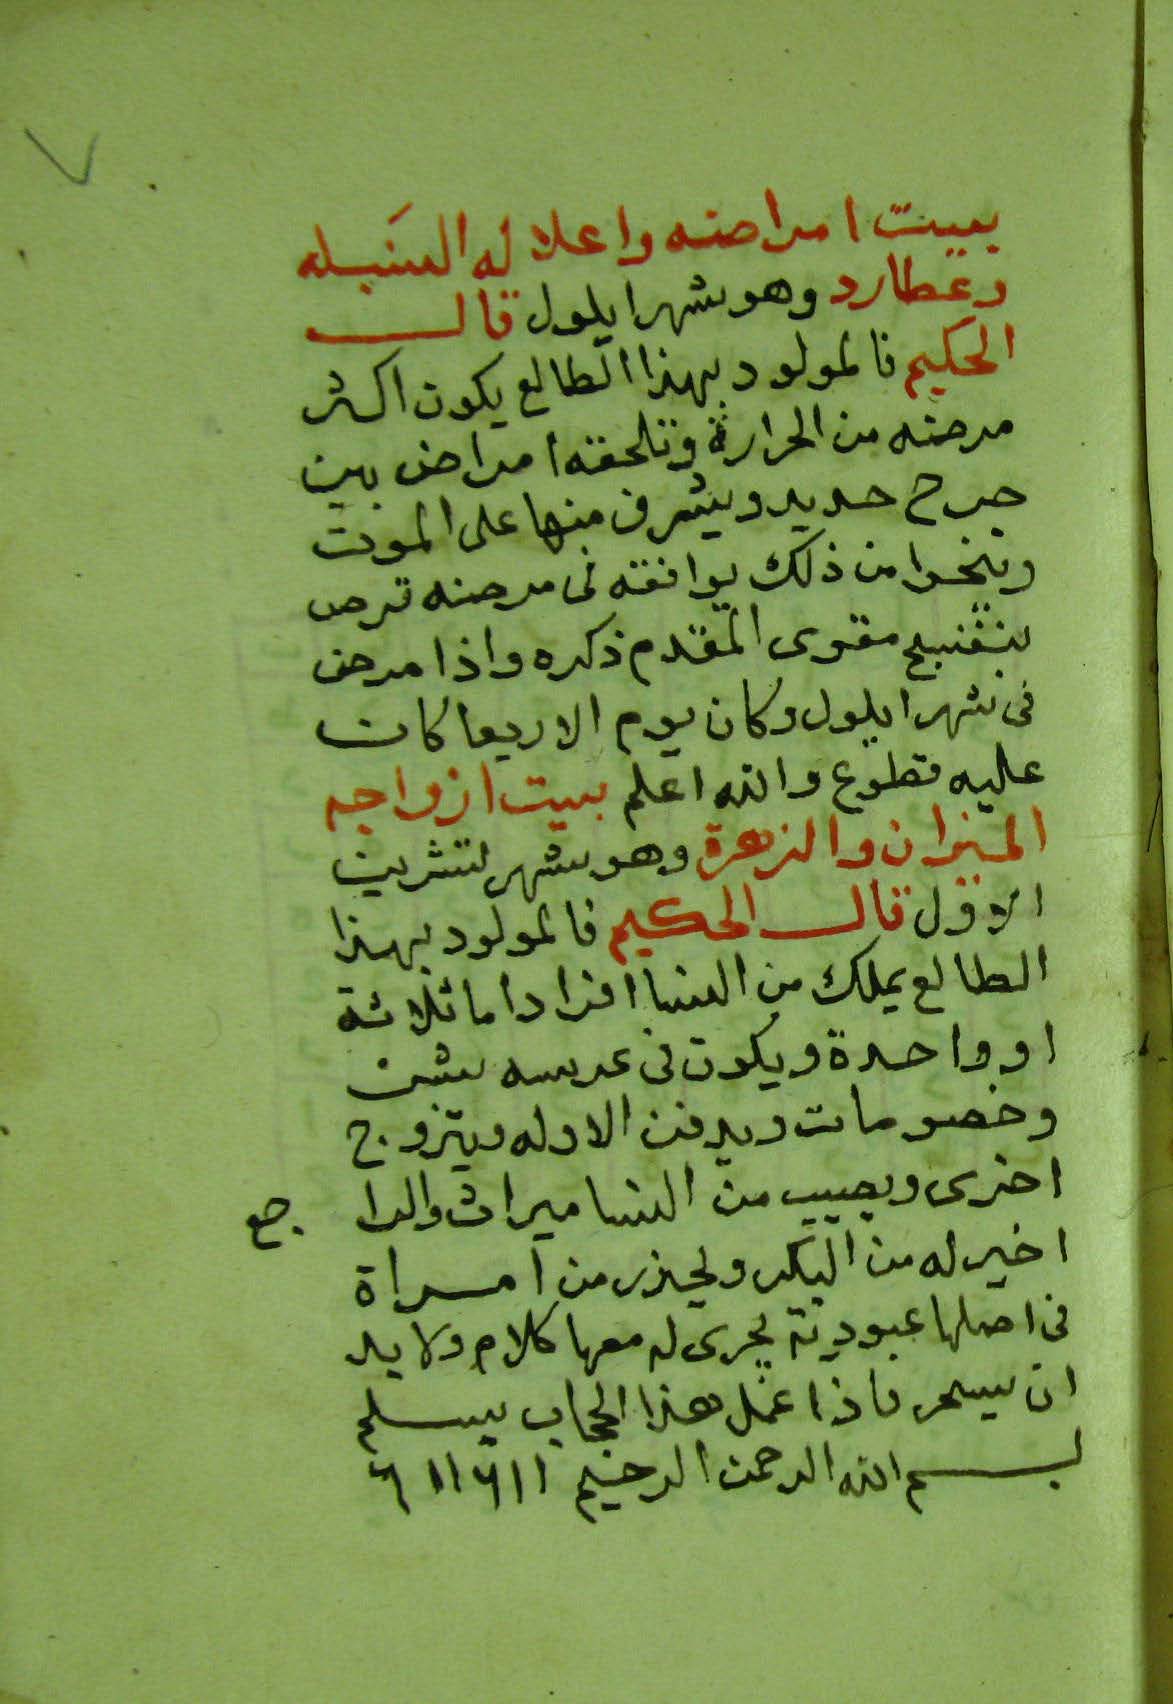 بييت امراضه واعلاله السنبله
وعطارد وهو شهر ايلول قال
الحكيم فالمولود بهذا الطالع يكون اكثر
مرضه من الحرارة وتلحقه امراض بين
جرح حديد ويشرف منها على الموت
وينخوا من ذلك يوافقه فى مرضه قرص
بنفنبج مقوى المقدم ذكره واذا مرض
فى شهر ايلول وكان يوم الاربعا كان
عليه قطوع والله اعلم بييت ازواجه
الميزان والزهرة وهو شهر تشرين
الاول قال الحكيم فالمولود بهذا
الطالع يملك من النسا افرادا ما ثلاثة
او واحدة ويكون فى عرسه
وخصومات ويدفن الاوله ويتزوج
اخرى ويصيب من النسا ميراث والرا جع
اخير له من البكر وليحذر من امراة
فى اصلها عبودية يجرى له معها كلام ولا بد
ان يسحر فاذا عمل هذا الحجاب يسلم
بسم الله الرحمن الرحيم ١١ ٦ ١١ ٦